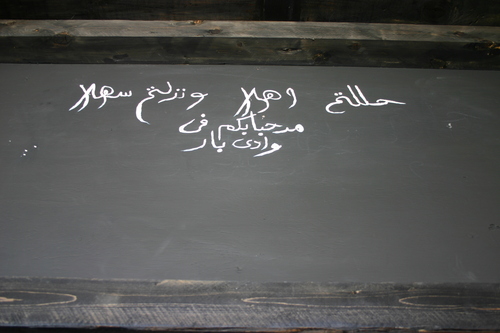 حللتم اهلا ونزلتم سهلا
مرحبا بكم في
وادي بار